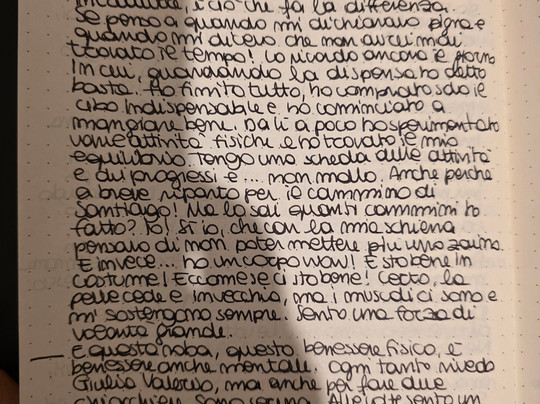 è ciò che fa la differenza.
Se penso a quando mi dichiaravo pigra e
quando mi dicevo che non avrei mai
trovato il tempo! Lo ricordo ancora il giorno
in cui, guardando la dispensa ho detto
basta. Ho finito tutto, ho comprato solo il
cibo indispensabile e ho cominciato a
mangiare bene. Da lì a poco ho sperimentato
varie attività fisiche e ho trovato il mio
equilibrio. Tengo una scheda delle attività
e dei progressi e... non mollo. Anche perché
a breve riparto per il cammino di
Santiago! Ma lo sai quanti cammini ho
fatto? 10! Sì io, che con la mia schiena
pensavo di non poter mettere più uno zaino.
E invece... ho un corpo wow! E sto bene in
costume! Eccome se ci sto bene! Certo, la
pelle cede e invecchio, ma i muscoli ci sono e
mi sostengono sempre. Sento una forza di
volontà grande.
— E questa roba, questo benessere fisico, è
benessere anche mentale. Ogni tanto rivedo
Giulio Valerio, ma anche per fare due
chiacchiere sono serena.